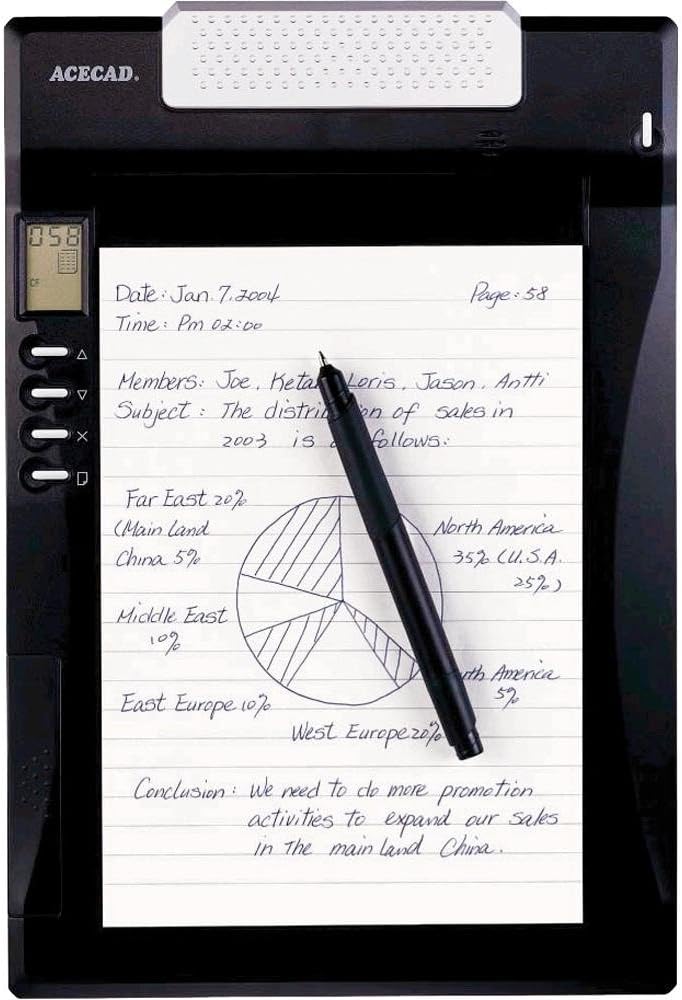 ACECAD®
058
CF
Date: Jan. 7, 2004 Page: 58
Time: Pm 02:00
Members: Joe, Loris, Jason, Antti
Subject: The of sales in
2003 is follows:
Far East 20%
(Main land
China 5%
North America
35% (U.S.A.
25%)
Middle East
10%
America
5%
East Europe 10%
West Europe 20%
Conclusion: We need to do more promotion
activities to expand our sales
in the main land China.